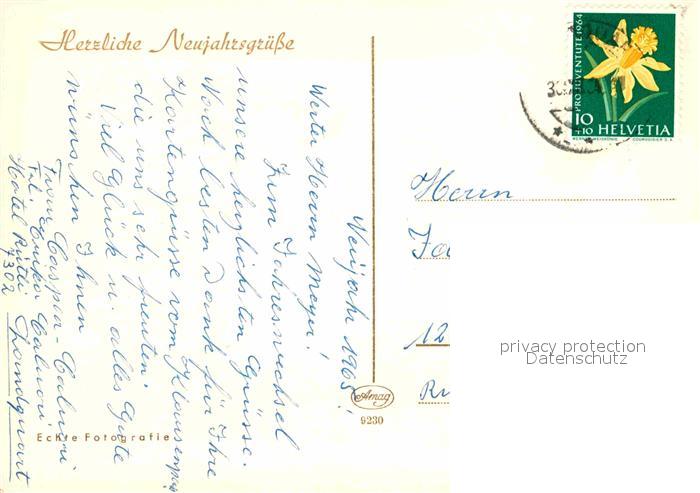 Herzliche Neujahrsgrüße
Neujahr 1965.
Werter Herrn Meyer!
Zum Jahreswechsel
unsere herzlichsten Grüsse.
Noch besten Dank für Ihre
Kartengrüsse vom Klausenpass
die uns sehr freuten.
Viel Glück u. alles Gute
wünschen Ihnen
Franz Caspar-Calmori
Frl. Erika Calmori
Hotel Rütli Landquart
7302
Echte Fotografie
Amag
9230
PRO JUVENTUTE 1964
10
+10 HELVETIA
COURVOISIER S.A.
30
Herrn
12
privacy protection
Datenschutz